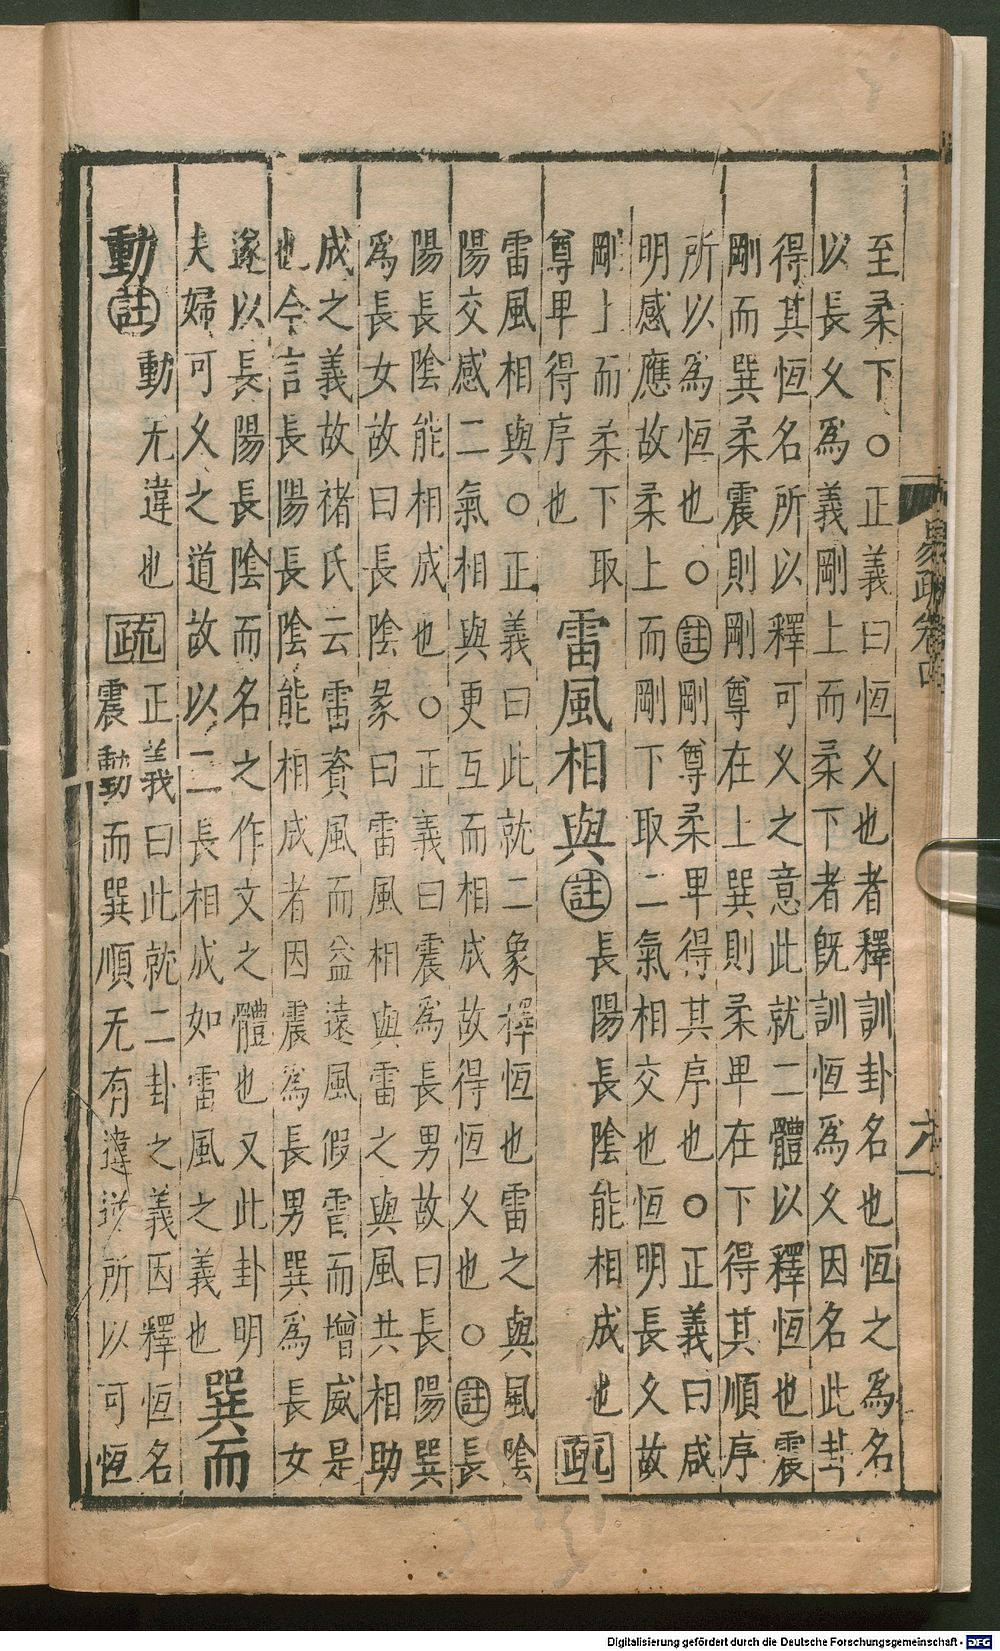 至柔下○正義曰恆久也者釋訓卦名也恆之為名
以長久為義剛上而柔下者旣訓恆為久因名此卦
得其恆名所以釋可久之意此就二體以釋恆也震
剛而巽柔震則剛尊在上巽則柔卑在下得其順序
所以為恆也○註剛尊柔卑得其序也○正義曰咸
明感應故柔上而剛下取二氣相交也恆明長久故
剛上而柔下取
尊卑得序也
雷風相與註
長陽長陰能相成也
疏
雷風相與○正義曰此就二象釋恆也雷之與風陰
陽交感二氣相與更互而相成故得恆久也○註長
陽長陰能相成也○正義曰震為長男故曰長陽巽
為長女故曰長陰彖曰雷風相與雷之與風共相助
成之義故褚氏云雷資風而益遠風假雷而增威是
也今言長陽長陰能相成者因震為長男巽為長女
遂以長陽長陰而名之作文之體也又此卦明
夫婦可久之道故以二長相成如雷風之義也
巽而
動註
動无違也
疏
正義曰此就二卦之義因釋恆名
震動而巽順无有違逆所以可恆
易疏卷四
六一
Digitalisierung gefördert durch die Deutsche Forschungsgemeinschaft - DFG